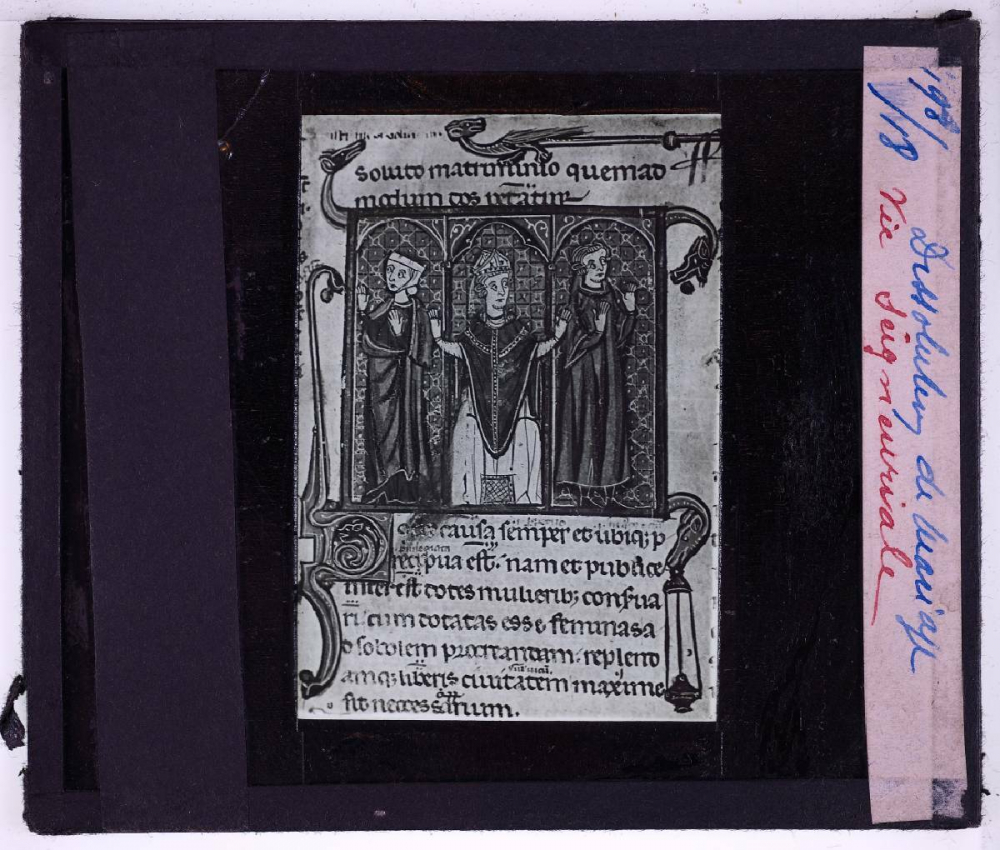 soluto matrimonio quemad
modum dos petatur
causa semper et ubiq; p
recipua est. nam et publice
interest dotes mulierib; conserua
ri. cum dotatas esse feminas a
d sobolem procreandam. replend
amq; liberis ciuitatem maxime
sit necessarium.
198/
118 Dissolution de Mariage
Vie Seigneuriale